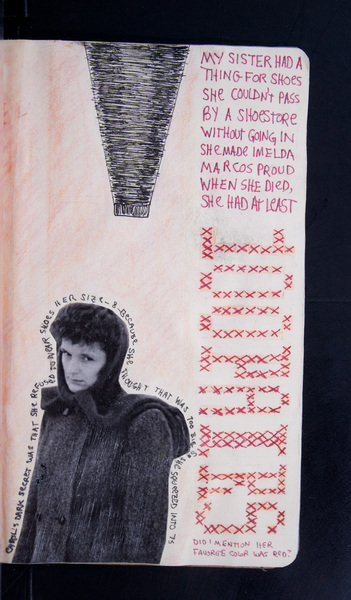 MY SISTER HAD A
THING FOR SHOES
SHE COULDN'T PASS
BY A SHOESTORE
WITHOUT GOING IN
SHE MADE IMELDA
MARCOS PROUD
WHEN SHE DIED,
SHE HAD AT LEAST
100 PAIRS
DID I MENTION HER
FAVORITE COLOR WAS RED?
CAROL'S DARK SECRET WAS THAT SHE REFUSED TO WEAR SHOES HER SIZE-8-BECAUSE SHE THOUGHT THAT WAS TOO BIG SO SHE SQUEEZED INTO 7s